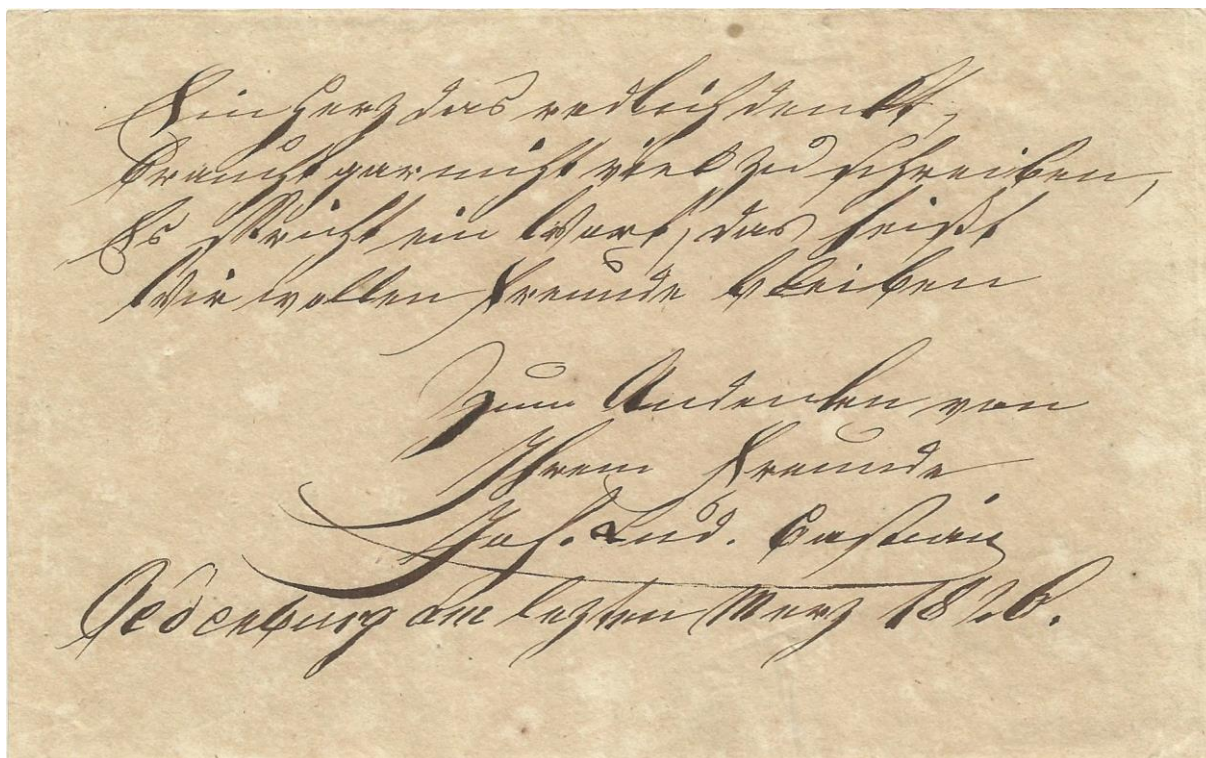 Ein Herz das redlich denkt,
braucht gar nicht viel zu schreiben,
Es spricht ein Wort, das heißt
Wir wollen Freunde bleiben
Zum Andenken von
Ihrem Freunde
Joh. Lud. Bastian
Oedenburg am lezten Merz 1826.